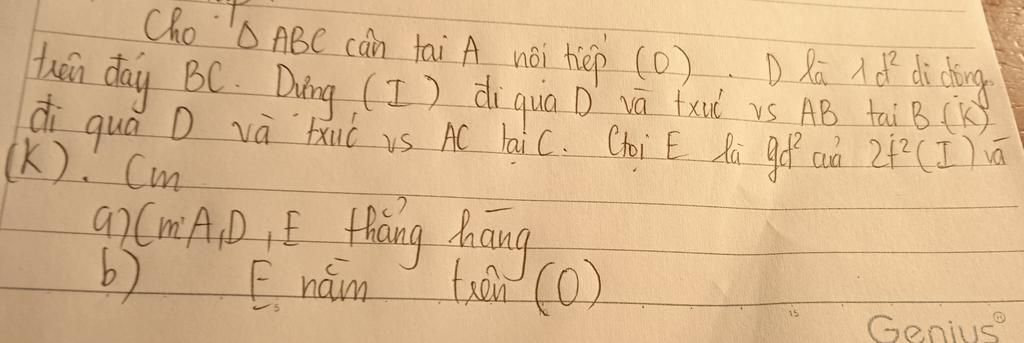 Cho Δ ABC cân tai A nôi tiếp (O). D là 1đ² di động
trên đáy BC. Dựng (I) đi qua D và txuć vs AB tai B (K)
đi qua D và txuć vs AC tại C. Gọi E là gđ² của 2t² (I) và
(K). Cm
a) Cm A,D,E thẳng hàng
b) E nằm trên (O)
15
Genius®